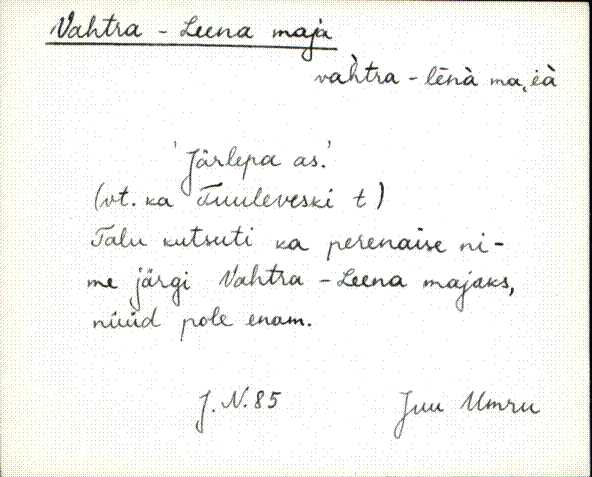 Vahtra - Leena maja
vah̀tra - lēnà ma͔i̯à
'Järlepa as.'
(vt. ka Tuuleveski t)
Talu kutsuti ka perenaise ni-
me järgi Vahtra - Leena majaks,
nüüd pole enam.
J. N. 85 Juu Umru